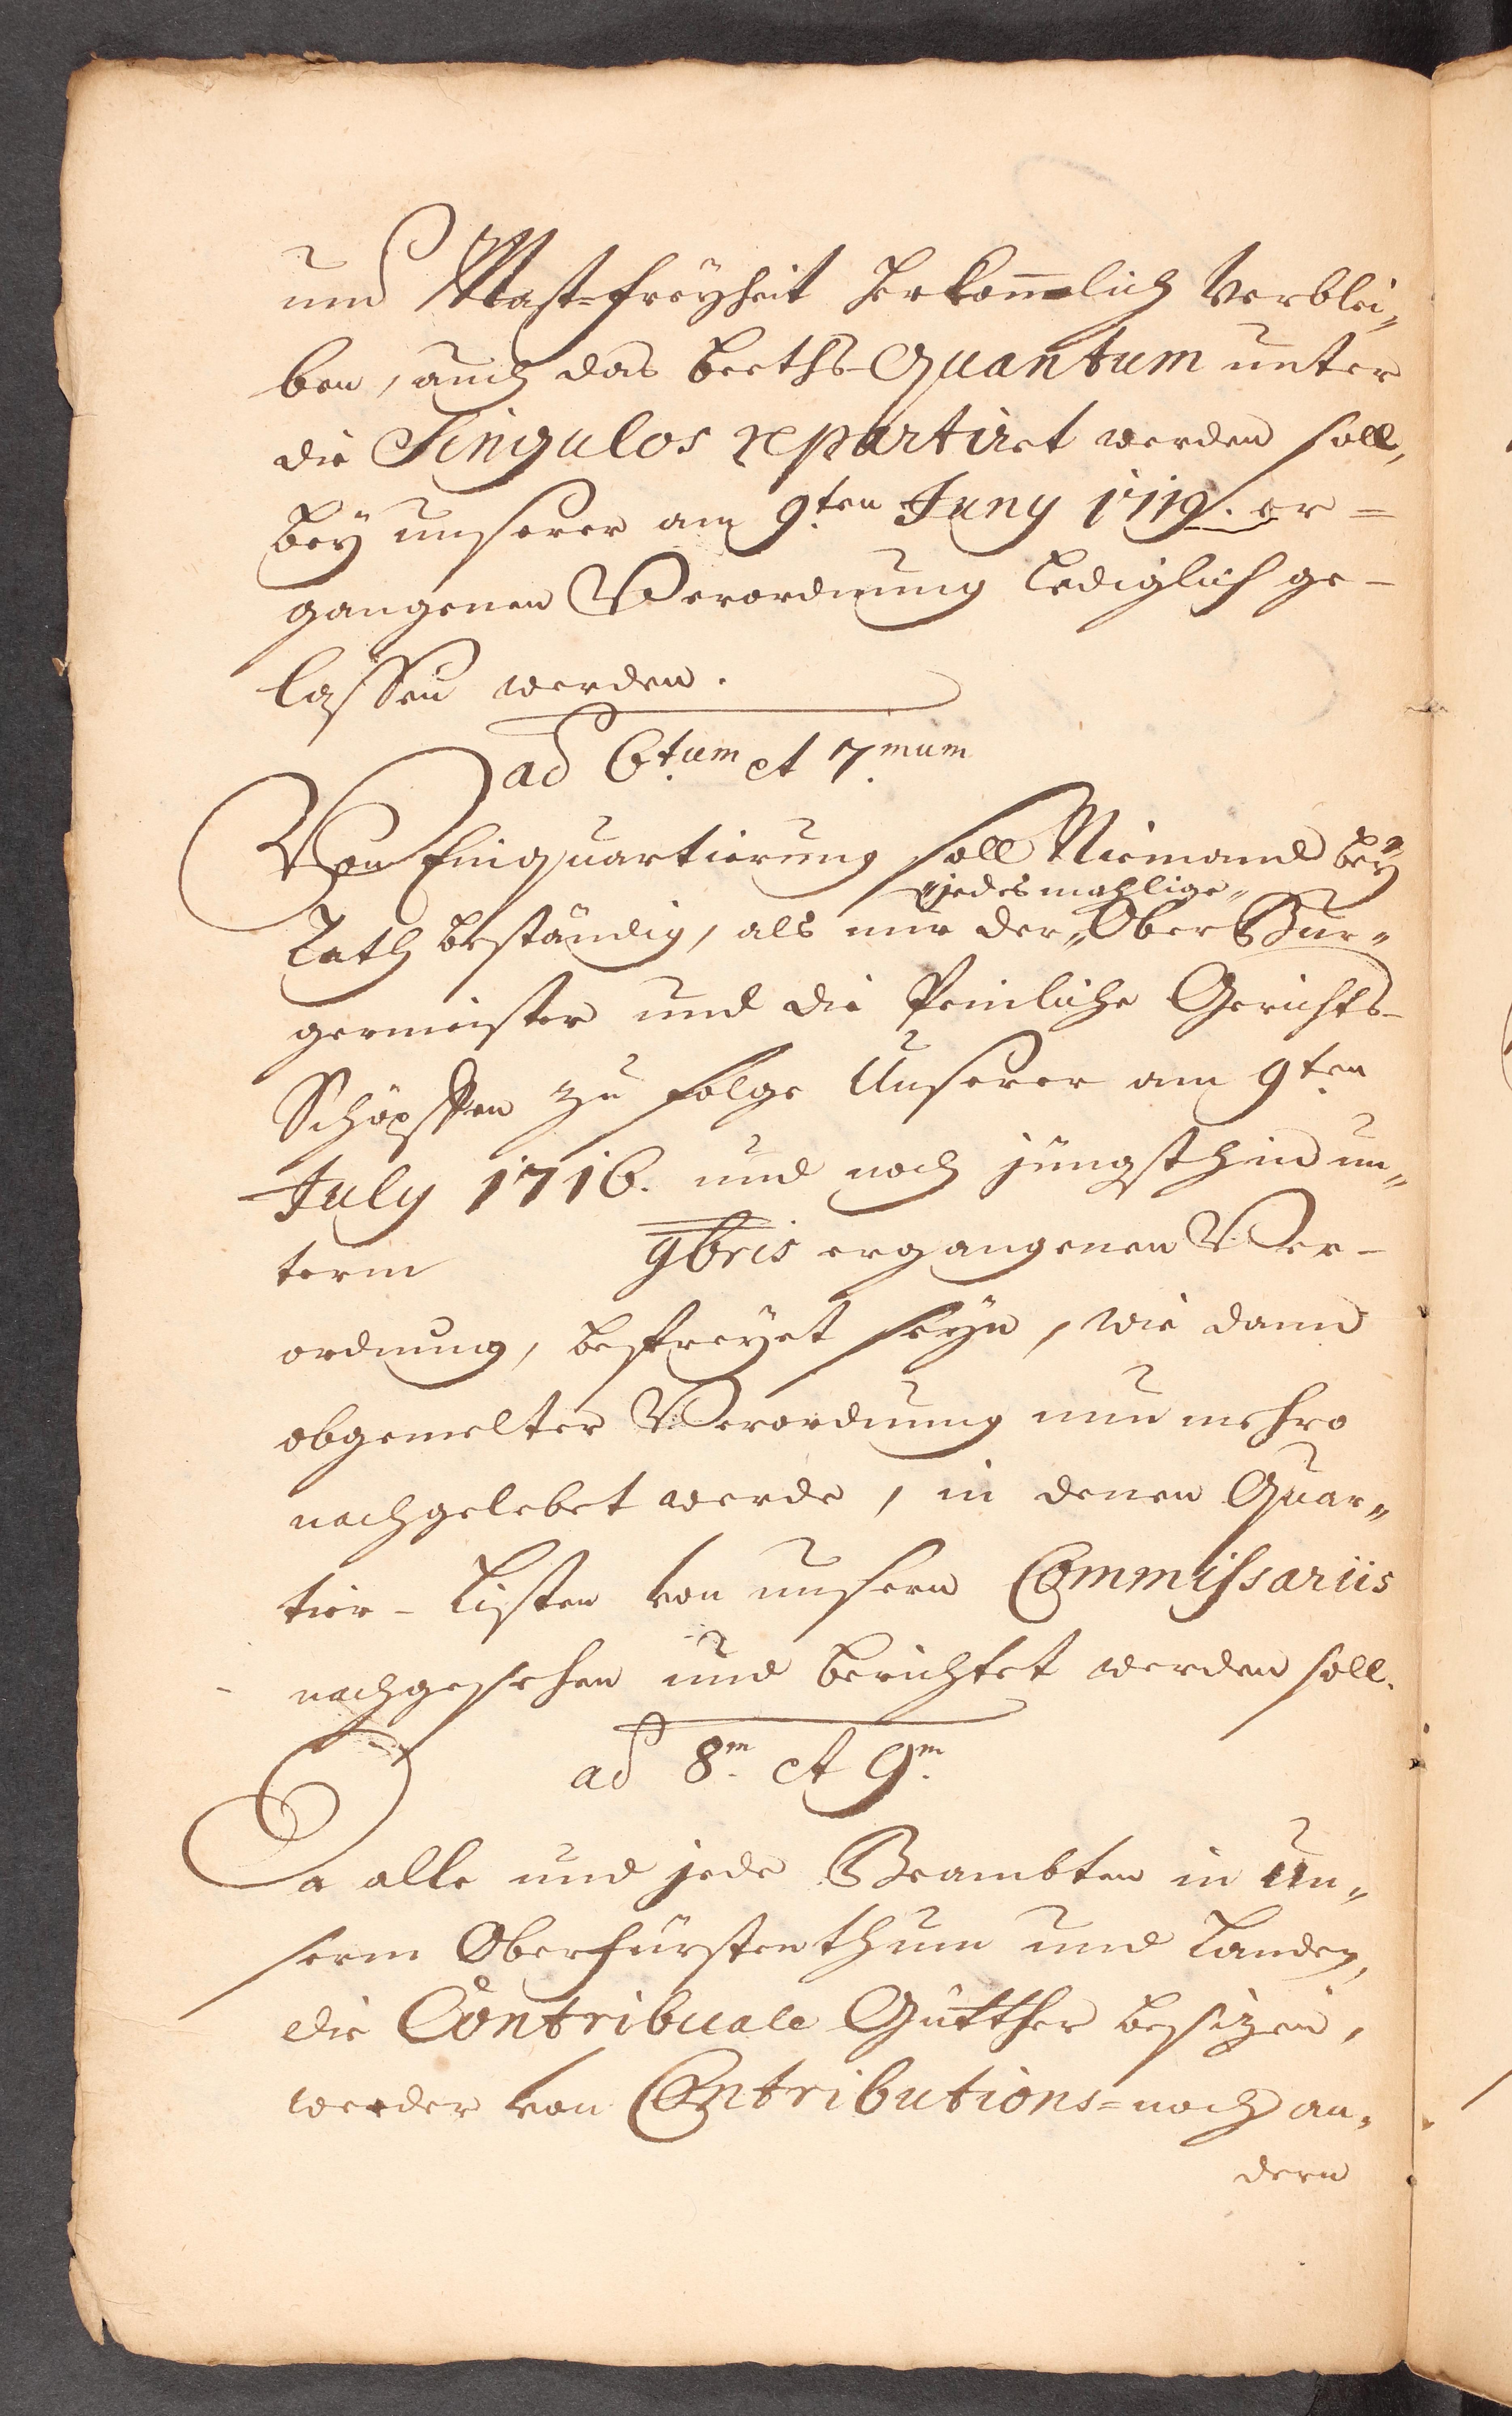 und Mast-freÿheit herkom̄lich verblei„
ben, auch das beeths-quantum unter
die Singulos repartiret werden soll,
beÿ unserer am 9.ten Juny 1719. er=
gangenen Verordnung lediglich ge-
lassen werden.
ad 6.tum et 7.mum
Von Einquartierung soll Niemand beÿ
jedesmahlige„
Rath beständig, als nur der„ Ober Bur„
germeister und die Peinliche Gerichts-
Schöpffen zu folge Unserer am 9ten
July 1716. und noch jüngsthin un„
term 9bris ergangenen Ver-
ordnung, befreÿet seÿn, wie dann
obgemelter Verordnung nunmehro
nachgelebet werde, in denen Quar„
tier-Listen von unsern Commissariis
nachgesehen und berichtet werden soll.
ad 8.m et 9.m
Da alle und jede Beambten in Un„
serm Oberfürstenthum und Landen,
die Contribuale Gütther besizen,
weeder von Contributions= noch an„
dern